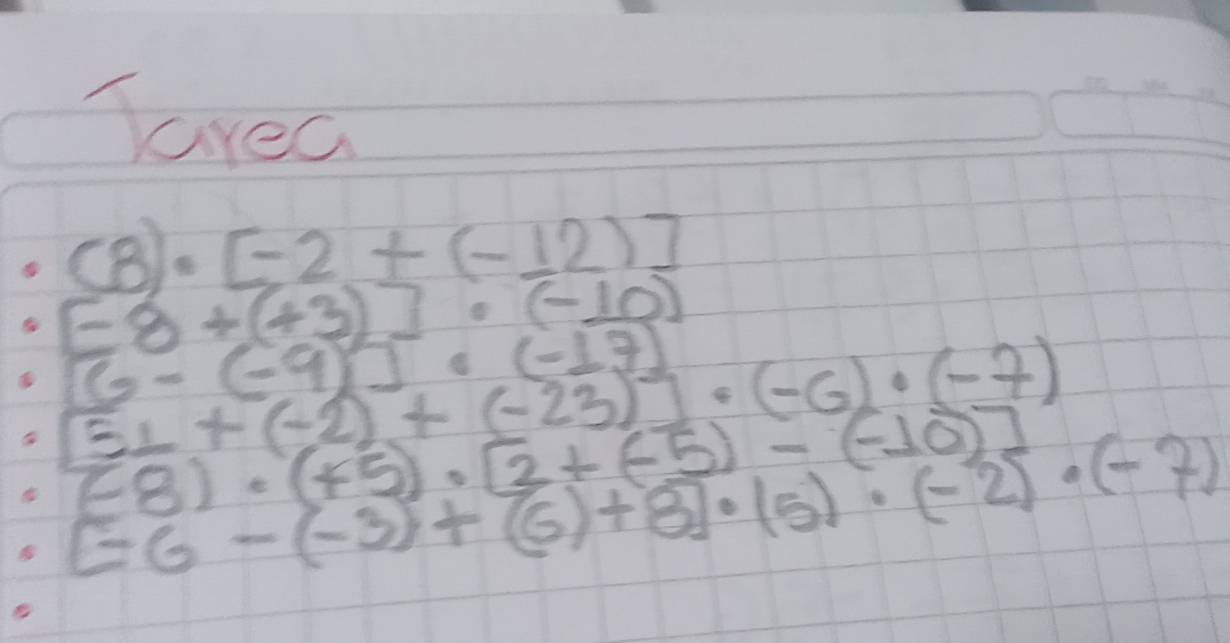 Tarea
(8)·[-2+(-12)]
[-8+(+3)]·(-10)
[6-(-9)]·(-17)
[51+(-2)+(-23)]·(-6)·(-7)
(-8)·(+5)·[2+(-5)-(-10)]
[-6-(-3)+(6)+8]·(5)·(-2)·(-7)